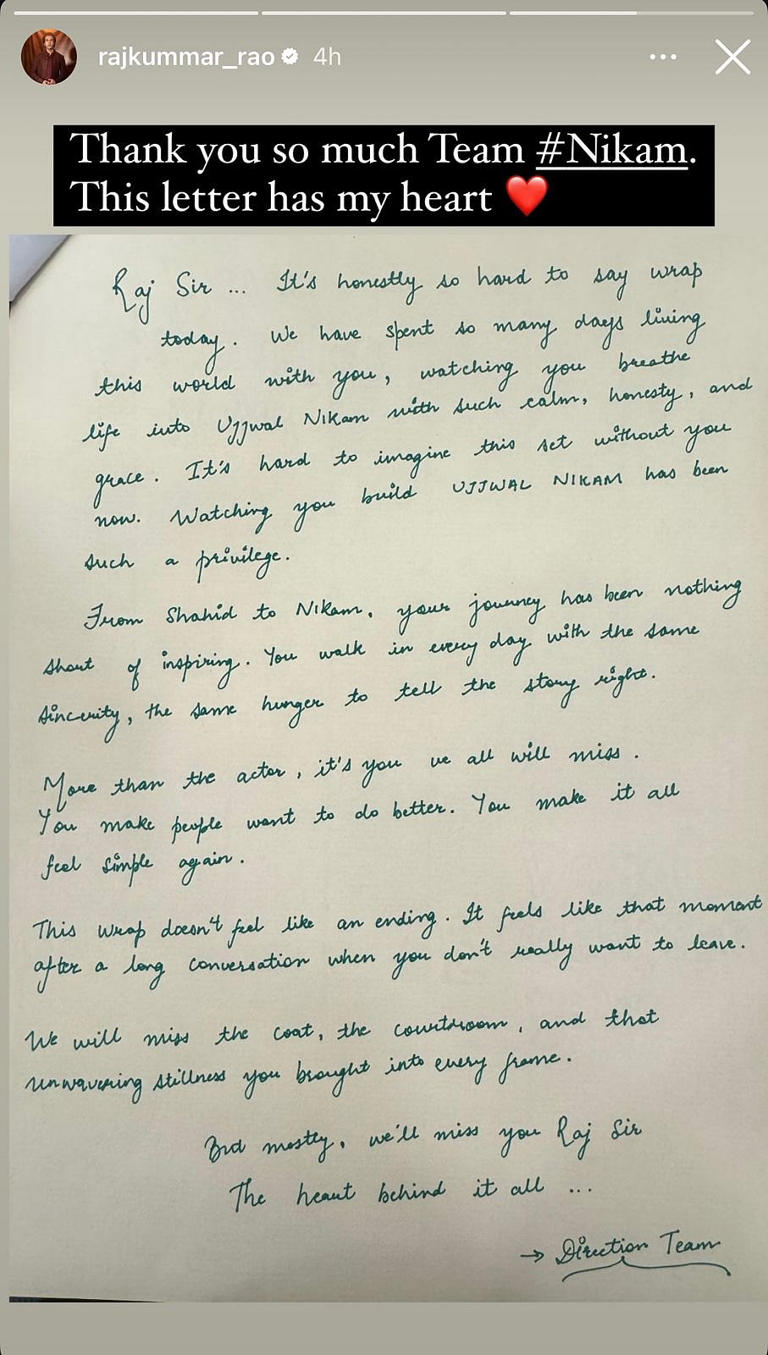 rajkummar_rao 4h
Thank you so much Team #Nikam.
This letter has my heart ❤️
Raj Sir ... It's honestly so hard to say wrap
today. We have spent so many days living
this world with you, watching you breathe
life into Ujjwal Nikam with such calm, honesty, and
grace. It's hard to imagine this set without you
now. Watching you build UJJWAL NIKAM has been
such a privilege.
From Shahid to Nikam, your journey has been nothing
short of inspiring. You walk in every day with the same
sincerity, the same hunger to tell the story right.
More than the actor, it's you we all will miss.
You make people want to do better. You make it all
feel simple again.
This wrap doesn't feel like an ending. It feels like that moment
after a long conversation when you don't really want to leave.
We will miss the coat, the courtroom, and that
unwavering stillness you brought into every frame.
But mostly, we'll miss you Raj Sir
The heart behind it all ...
→ Direction Team